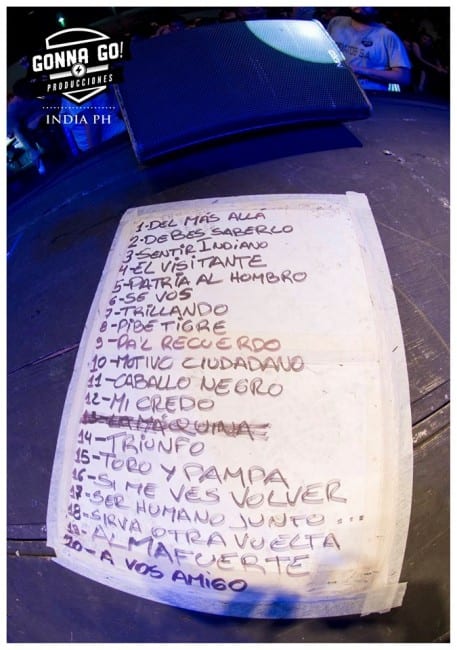 GONNA GO!
PRODUCCIONES
INDIA PH
1-DEL MÁS ALLÁ
2-DEBES SABERLO
3-SENTIR INDIANO
4-EL VISITANTE
5-PATRIA AL HOMBRO
6-SE VOS
7-TRILLANDO
8-PIBE TIGRE
9-PA'L RECUERDO
10-MOTIVO CIUDADANO
11-CABALLO NEGRO
12-MI CREDO
13-LA MÁQUINA
14-TRIUNFO
15-TORO Y PAMPA
16-SI ME VES VOLVER
17-SER HUMANO JUNTO ...
18-SIRVA OTRA VUELTA
19-ALMAFUERTE
20-A VOS AMIGO